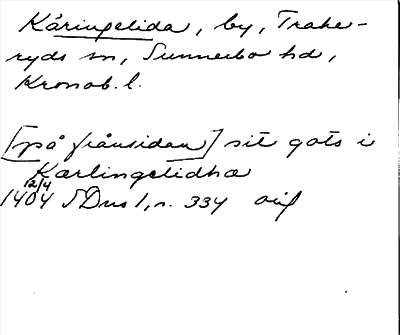 Käringelida, by, Trahe-
ryds sn, Sunnerbo hd,
Kronob. l.
[på frånsidan] sit gots i
Kærlingelidha
12/4
1404 SDns 1, n. 334 orig